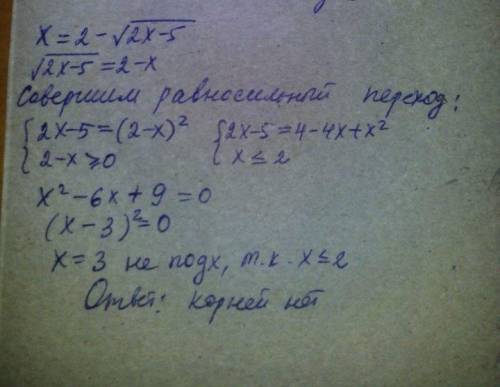 x = 2 - √2x-5
√2x-5 = 2-x
Совершим равносильный переход:
{ 2x-5 = (2-x)² { 2x-5 = 4-4x+x²
{ 2-x ≥ 0 { x ≤ 2
x² - 6x + 9 = 0
(x-3)² = 0
x = 3 не подх, т.к. x ≤ 2
Ответ: корней нет